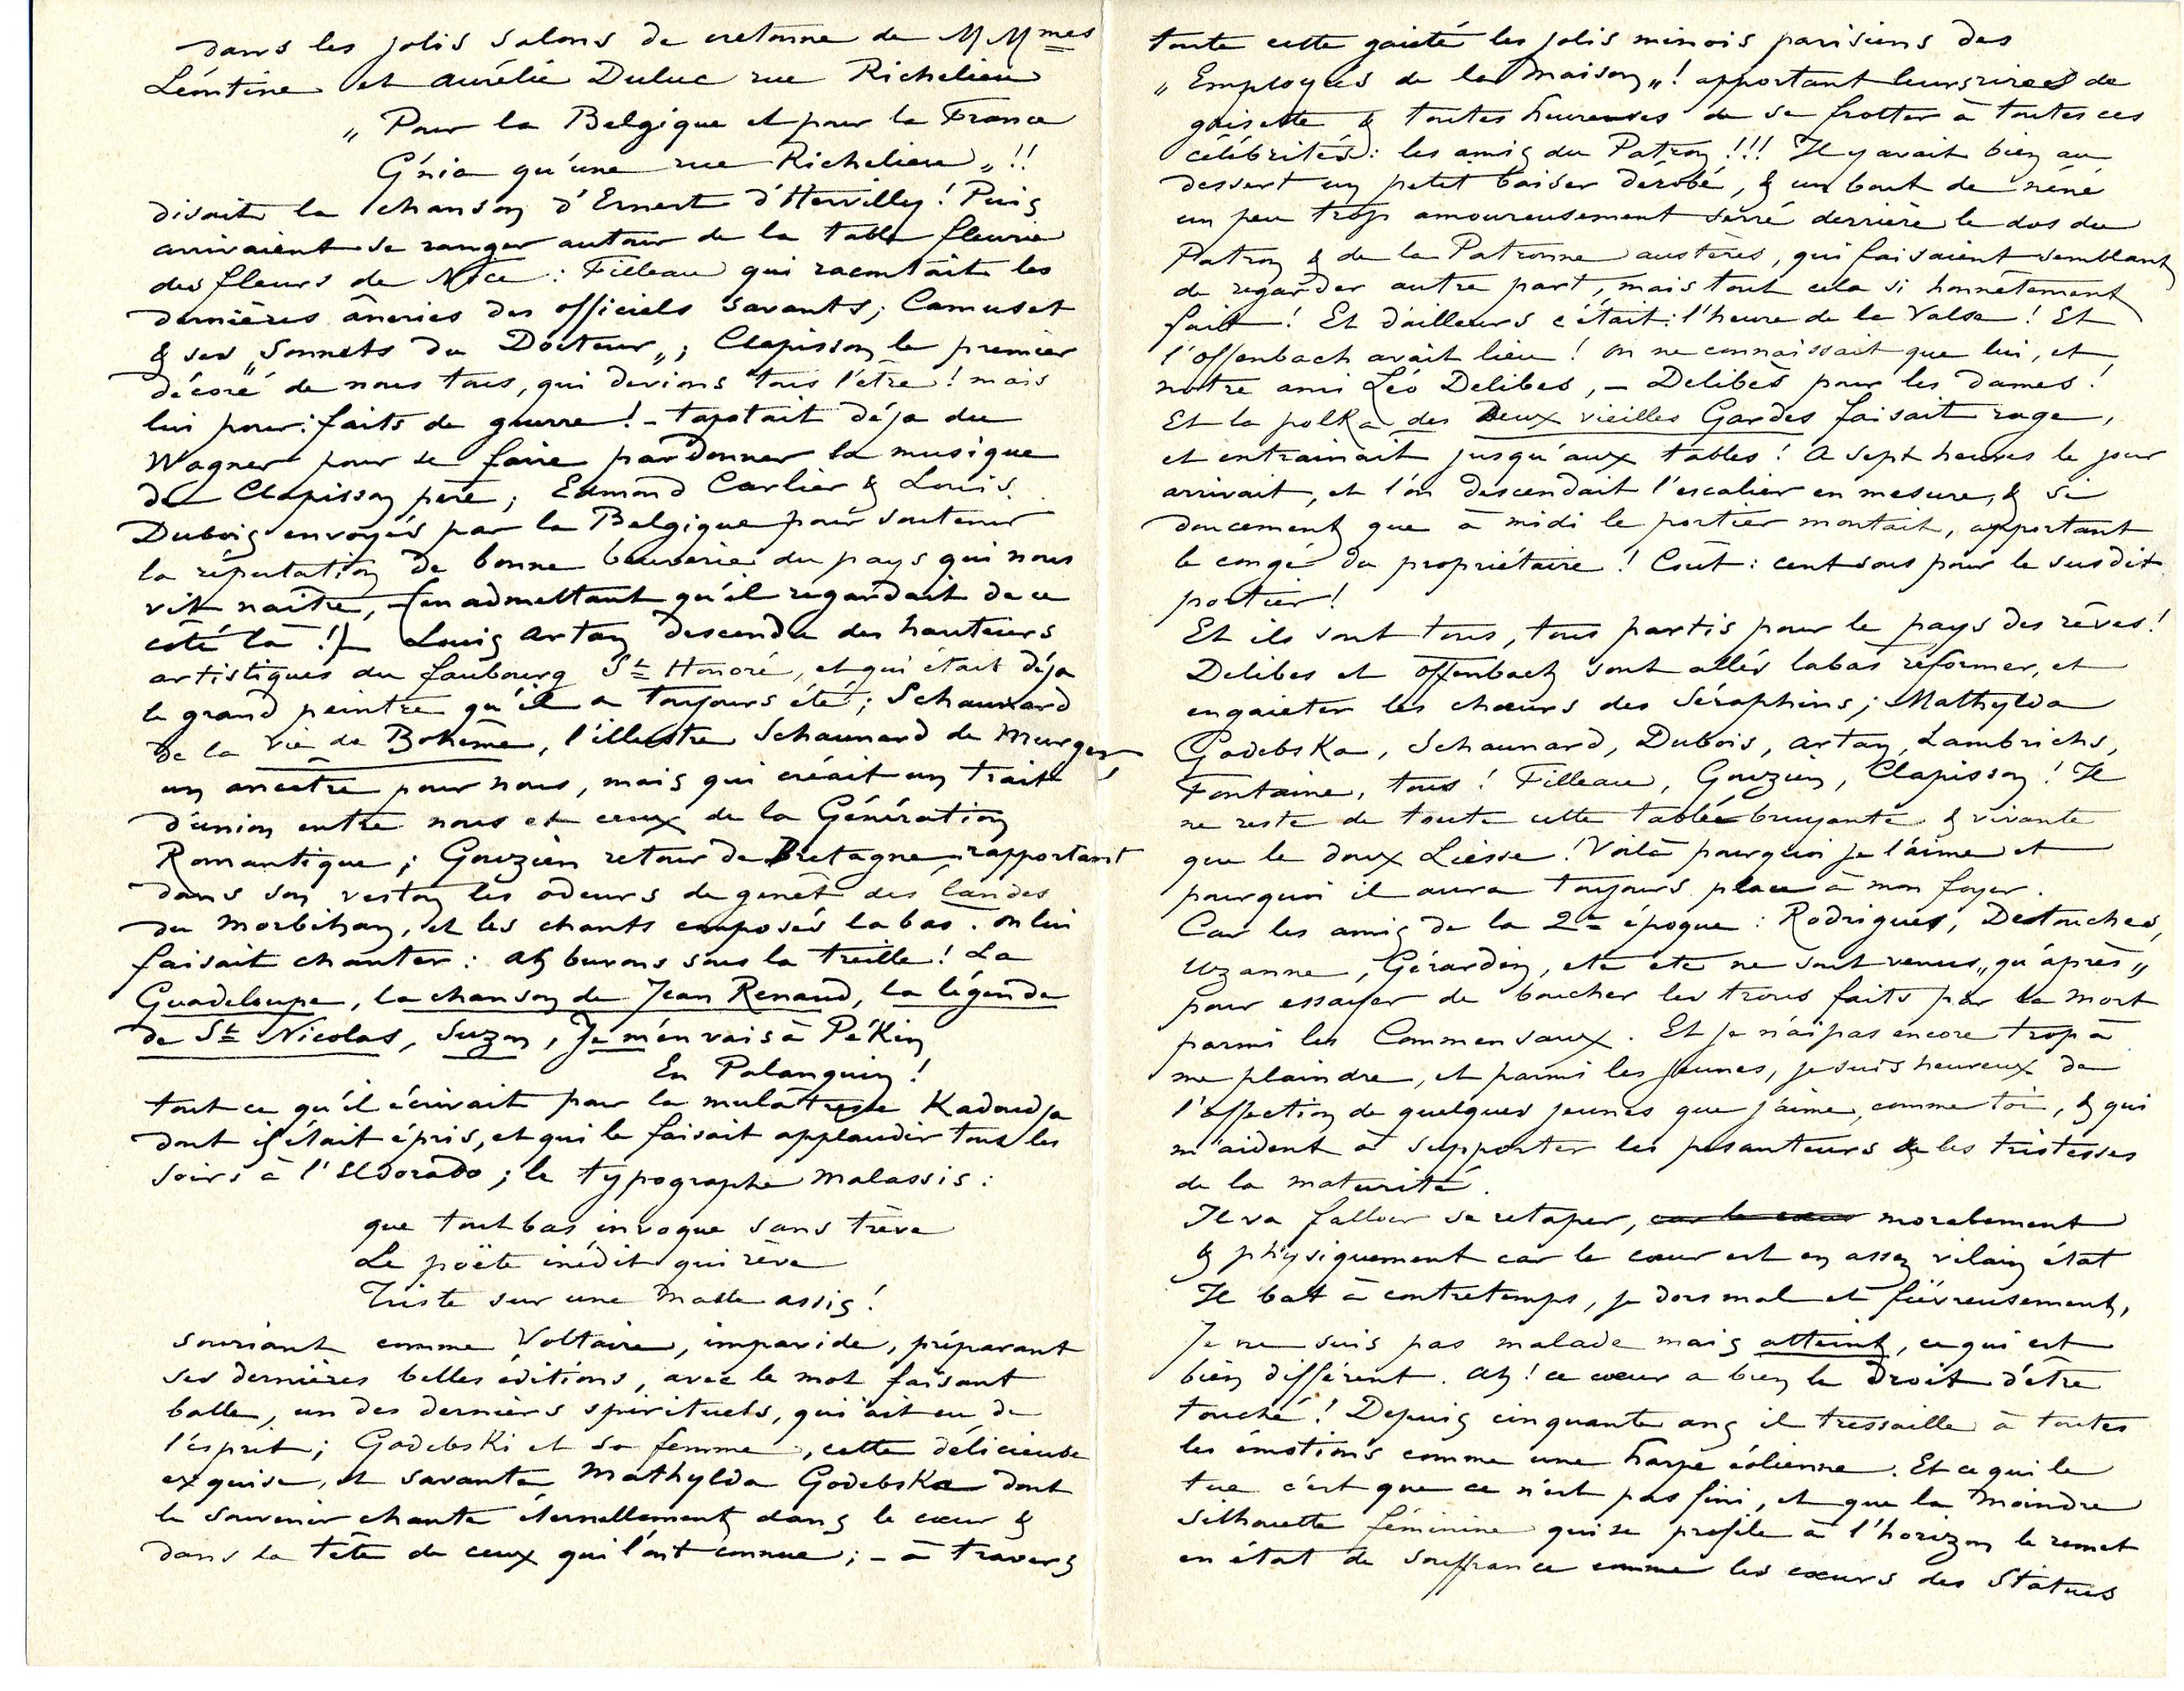 dans les jolis salons de cretonne de MMmes
Léontine et Aurélie Duluc rue Richelieu
„ Pour la Belgique et pour la France
G'nia qu'une rue Richelieu „!!
disait la chanson d'Ernest d'Hervilly! Puis
arrivaient se ranger autour de la table fleurie
des fleurs de Nice : Filleau qui racontait les
dernières âneries des officiels savants ; Camuset
& ses „Sonnets du Docteur„ ; Clapisson le premier
décoré de nous tous, qui devions tous l'être ! mais
lui pour : faits de guerre ! – tapotait déja du
Wagner pour se faire pardonner la musique
de Clapisson père ; Edmond Carlier & Louis
Dubois envoyés par la Belgique pour soutenir
la réputation de bonne beuverie du pays qui nous
vit naître, (en admettant qu'il regardait de ce
côté là !) – Louis Artan descendu des hauteurs
artistiques du faubourg St Honoré, et qui était déja
le grand peintre qu'il a toujours été ; Schaunard
de la Vie de Bohème, l'illustre Schaunard de Murger,
un ancêtre pour nous, mais qui créait un trait
d'union entre nous et ceux de la Génération
Romantique ; Gouzien retour de Bretagne rapportant
dans son veston les odeurs de genêt des landes
du Morbihan, et les chants composés la bas. On lui
faisait chanter : Ah buvons sous la treille ! La
Guadeloupe, la chanson de Jean Renaud, la légende
de St Nicolas, Suzon, Je m'en vais à Pékin
En Palanquin !
tout ce qu'il écrivait pour la mulâtresse Kadoudja
dont il était épris, et qui le faisait applaudir tous les
soirs à l'Eldorado ; le typographe Malassis :
que tout bas invoque sans trève
Le poëte inédit qui rêve
Triste sur une malle assis !
souriant comme Voltaire, impavide, préparant
ses dernières belles éditions, avec le mot faisant
balle, un des derniers spirituels, qui ait eu de
l'esprit ; Godebski et sa femme, cette délicieuse
exquise, et savante Mathylda Godebska dont
le souvenir chante éternellement dans le cœur &
dans la tête de ceux qui l'ont connue ; – à travers
toute cette gaieté les jolis minois parisiens des
„ Employées de la Maison „! apportant leurs rires de
grisette & toutes heureuses de se frotter à toutes ces
célébrités : les amis du Patron !!! Il y avait bien au
dessert un petit baiser dérobé, & un bout de néné
un peu trop amoureusement serré derrière le dos du
Patron & de la Patronne austères, qui faisaient semblant
de regarder autre part, mais tout cela si honnêtement
fait ! Et d'ailleurs c'était : l'heure de la Valse ! Et
l'Offenbach avait lieu ! On ne connaissait que lui, et
notre ami Léo Delibes, – Delibès pour les dames !
Et la polka des Deux vieilles Gardes faisait rage,
et entrainait jusqu'aux tables ! A sept heures le jour
arrivait, et l'on descendait l'escalier en mesure, & si
doucement que à midi le portier montait, apportant
le congé du propriétaire ! Coût : cent sous pour le susdit
portier !
Et ils sont tous, tous partis pour le pays des rêves !
Delibes et Offenbach sont allés labas réformer, et
engaieter les chœurs des Séraphins ; Mathylda
Godebska, Schaunard, Dubois, Artan, Lambrichs,
Fontaine, tous ! Filleau, Gouzien, Clapisson ! Il
ne reste de toute cette tablée bruyante & vivante
que le doux Liesse ! Voilà pourquoi je l'aime et
pourquoi il aura toujours place à mon foyer.
Car les amis de la 2e époque : Rodrigues, Destouches,
Uzanne, Gérardin, etc etc ne sont venus „qu'après„
pour essayer de boucher les trous faits par la mort
parmi les Commensaux. Et je n'ai pas encore trop à
me plaindre, et parmi les jeunes, je suis heureux de
l'affection de quelques jeunes que j'aime, comme toi, & qui
m'aident à supporter les pesanteurs & les tristesses
de la maturité.
Il va falloir se retaper, car le cœur moralement
& physiquement car le cœur est en assez vilain état
Il bat à contretemps, je dors mal et fiévreusement,
Je ne suis pas malade mais atteint, ce qui est
bien différent. Ah ! ce cœur a bien le droit d'être
touché ! Depuis cinquante ans il tressaille à toutes
les émotions comme une harpe éolienne. Et ce qui le
tue c'est que ce n'est pas fini, et que la moindre
silhouette féminine qui se profile à l'horizon le remet
en état de souffrance comme les cœurs des Statues